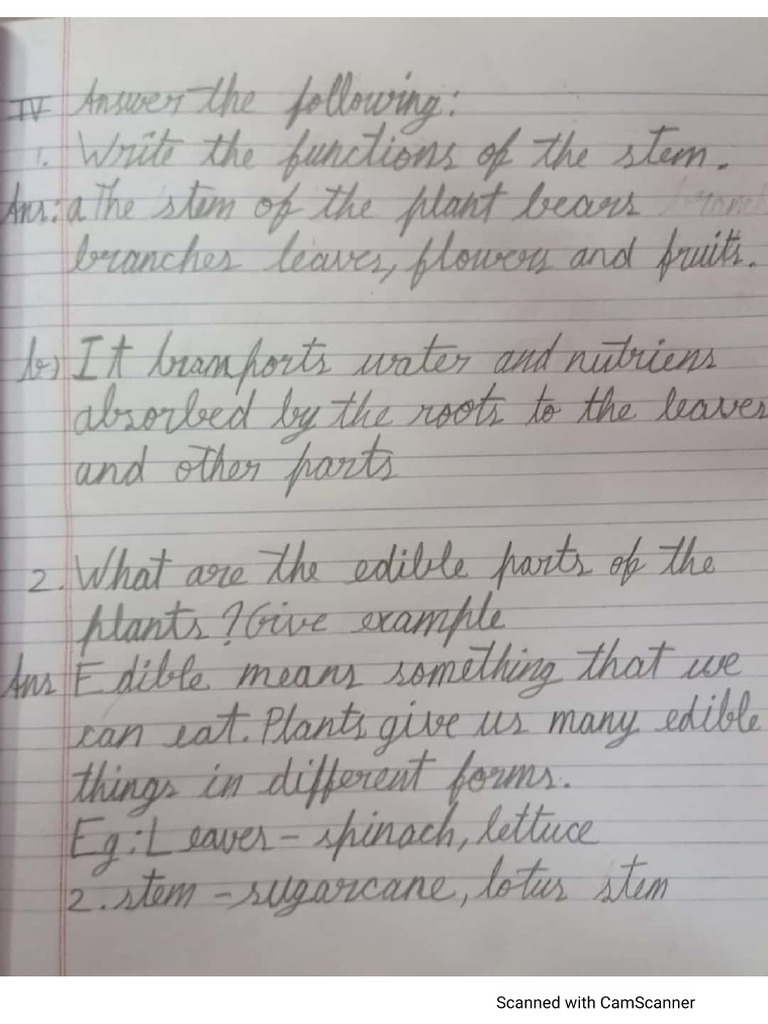 IV Answer the following:
1. Write the functions of the stem.
Ans: a The stem of the plant bears
branches leaves, flowers and fruits.
b) It tranports water and nutriens
absorbed by the roots to the leaves
and other parts
2. What are the edible parts of the
plants? Give example
Ans Edible means something that we
can eat. Plants give us many edible
things in different forms.
Eg: Leaves - spinach, lettuce
2. stem - sugarcane, lotus stem
Scanned with CamScanner